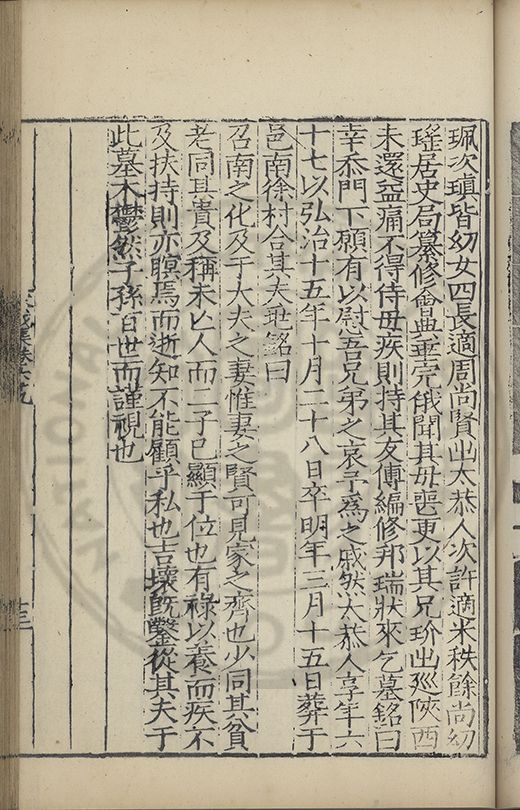 珮次瑱皆幼女四長適周尚賢出太恭人次許適米秩餘尚幼
瑤居史局纂修會典垂完俄聞其母喪更以其兄玠出廵陜西
未還益痛不得侍母疾則持其友傅編修邦瑞狀來乞墓銘曰
幸忝門下願有以慰吾兄弟之哀予爲之戚然太恭人享年六
十七以弘治十五年十月二十八日卒明年三月十五日葬于
邑南徐村合其夫兆銘曰
召南之化及于大夫之妻惟妻之賢可見家之齊也少同其貧
老同其貴及稱未亡人而二子已顯于位也有祿以養而疾不
及扶持則亦瞑焉而逝知不能顧乎私也吉壤旣鑿從其夫于
此墓木鬱然子孫百世而謹視也
十三